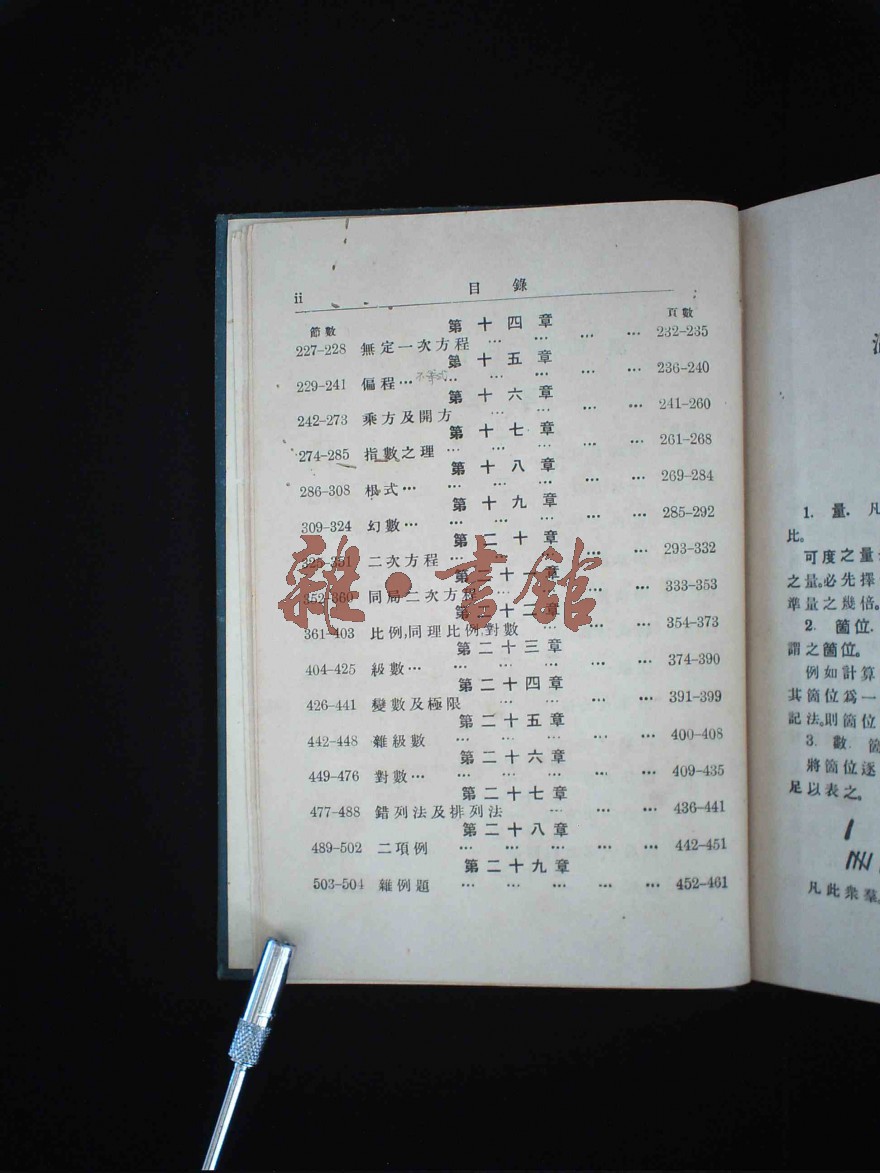 ii
目錄
節數 頁數
第十四章
227–228 無定一次方程 … … … … 232–235
第十五章
229–241 偏程… 不等式 … … … … 236–240
第十六章
242–273 乘方及開方 … … … … 241–260
第十七章
274–285 指數之理 … … … … … 261–268
第十八章
286–308 根式… … … … … … 269–284
第十九章
309–324 幻數… … … … … … 285–292
第二十章
325–351 二次方程 … … … … … 293–332
第二十一章
352–360 同局二次方程 … … … … 333–353
第二十二章
361–403 比例,同理比例,對數 … … … 354–373
第二十三章
404–425 級數… … … … … … 374–390
第二十四章
426–441 變數及極限 … … … … 391–399
第二十五章
442–448 雜級數 … … … … … 400–408
第二十六章
449–476 對數… … … … … … 409–435
第二十七章
477–488 錯列法及排列法 … … … 436–441
第二十八章
489–502 二項例 … … … … … 442–451
第二十九章
503–504 雜例題 … … … … … 452–461
雜·書館
1. 量. 凡
比。
可度之量
之量。必先擇
準量之幾倍。
2. 箇位.
謂之箇位。
例如計算
其箇位爲一
記法。則箇位
3. 數. 箇
將箇位逐
足以表之。
凡此衆羣。